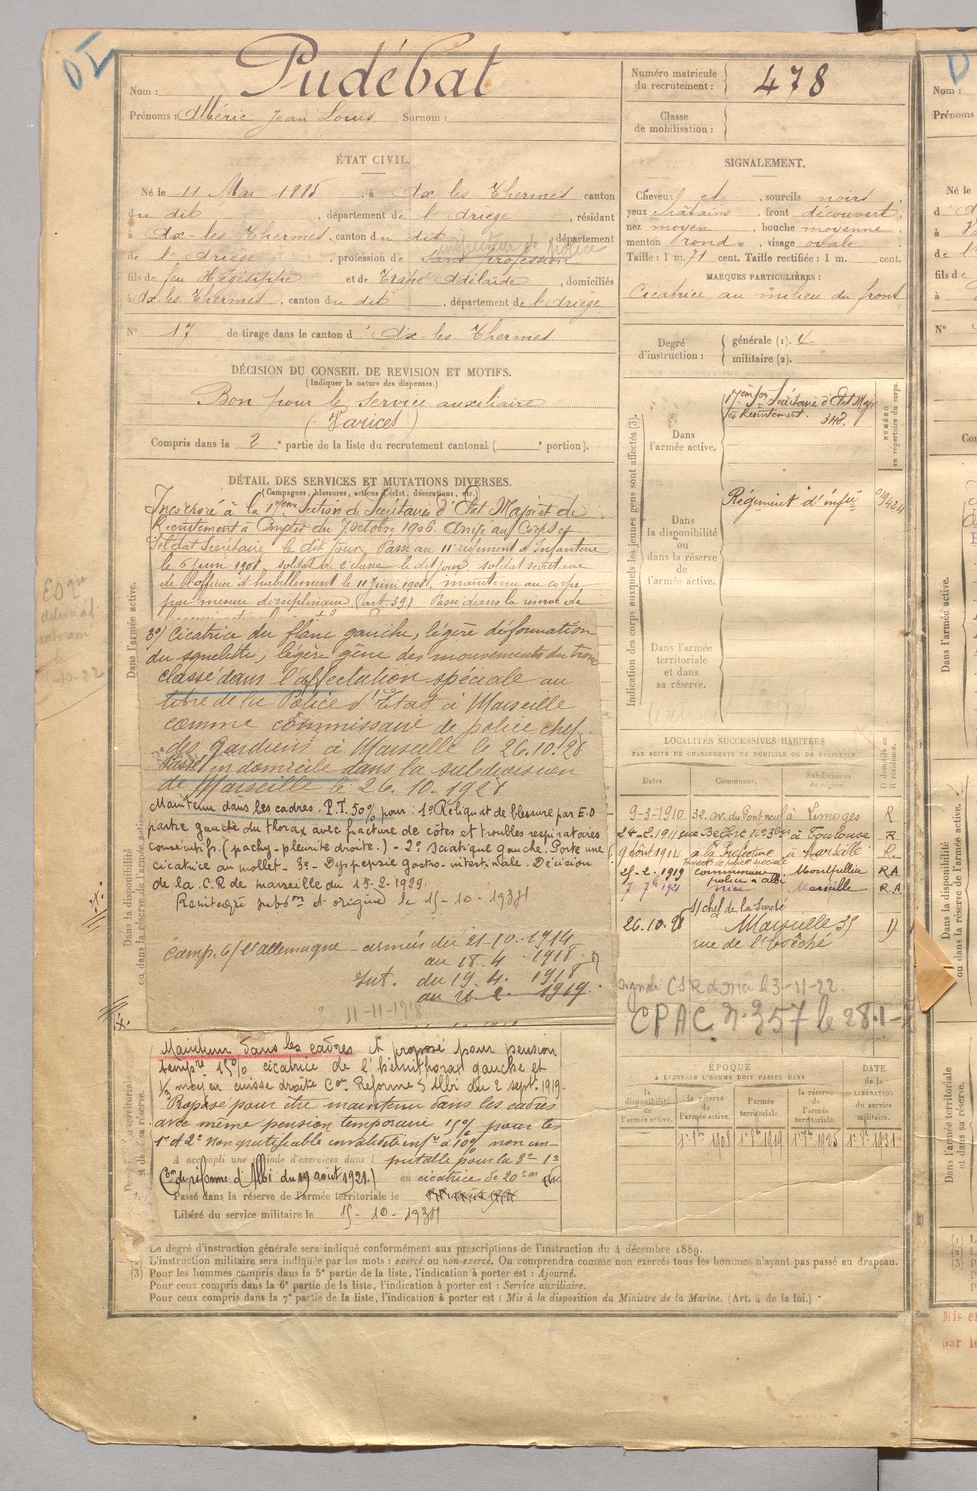 Nom : Pudébat
Prénoms : Albéric Jean Louis Surnom :
ÉTAT CIVIL.
Né le 11 Mai 1885, à Ax les Thermes canton
du dit, département de l'Ariège, résidant
à Ax-les-Thermes, canton du dit, département
inspecteur de police
de l'Ariège, profession de sans profession
fils de feu Hégésippe et de Trapé Adélaïde, domiciliés
à Ax les Thermes, canton du dit, département de l'Ariège
N° 17 de tirage dans le canton d'Ax-les-Thermes
DÉCISION DU CONSEIL DE REVISION ET MOTIFS.
(Indiquer la nature des dispenses.)
Bon pour le service auxiliaire
(Varices)
Compris dans la 2e partie de la liste du recrutement cantonal ( e portion).
DÉTAIL DES SERVICES ET MUTATIONS DIVERSES.
(Campagnes, blessures, actions d'éclat, décorations, etc.)
Incorporé à la 17ème Section de Secrétaires d'Etat Major et de
Recrutement à compter du 7 octobre 1906. Arrivé au Corps et
Soldat Secrétaire le dit jour. Passé au 11e régiment d'Infanterie
le 6 juin 1908, soldat de 2e classe le dit jour, soldat secrétaire
de l'officier d'habillement le 11 juin 1908, maintenu au corps
par mesure disciplinaire (art. 39) Passé dans la réserve de
3°/ Cicatrice du flanc gauche, légère déformation
du squelette, légère gêne des mouvements du tronc
classé dans l'affectation spéciale au
titre de la Police d'Etat à Marseille
comme commissaire de police chef
des gardiens à Marseille le 26.10.28
Passé en domicile dans la subdivision
de Marseille le 26.10.1928
Maintenu dans les cadres. P.T. 50% pour : 1° Reliquat de blessure par E.O
partie gauche du thorax avec fracture de côtes et troubles respiratoires
consécutifs. (pachy-pleurite droite.) - 2° Sciatique gauche. Porte une
cicatrice au mollet - 3° Dyspepsie gastro-intestinale. Décision
de la C.R de marseille du 15-2-1929.
Réintégré subdon d'origine le 15-10-1934
Camp. c/ l'allemagne - armées du 21-10-1914
au 18.4.1918
Int. du 19.4.1918
au 21.2.1919.
11-11-1918
Maintenu dans les cadres et proposé pour pension
tempre 15% cicatrice de l'hémithorax gauche et
1/3 moyen cuisse droite Con Réforme d'Albi du 2 sept. 1919-
Proposé pour être maintenu dans les cadres
avec même pension temporaire 15% pour les
1° et 2° non gratifiable invalidité infre à 10% non im-
A accompli une période d'exercices dans l putable pour la 3° 1°
(Con de réforme d'Albi du 19 août 1921.) au cicatrice de 20 cm
Passé dans la réserve de l'armée territoriale le
Libéré du service militaire le 15-10-1934
Dans l'armée active.
Dans la disponibilité
ou dans la réserve de l'armée active.
Numéro matricule
du recrutement : 478
Classe
de mobilisation :
SIGNALEMENT.
Cheveux et, sourcils noirs
yeux châtains, front découvert,
nez moyen, bouche moyenne,
menton rond, visage ovale
Taille : 1 m. 71 cent. Taille rectifiée : 1 m. cent.
MARQUES PARTICULIÈRES :
Cicatrice au milieu du front
Degré
d'instruction :
générale (1).
militaire (2).
Indication des corps auxquels les jeunes gens sont affectés (3).
NUMÉRO
au répertoire du corps.
Dans
l'armée active.
17ème Son Secrétaires d'Etat Major
et Recrutement. 348.
Dans
la disponibilité
ou
dans la réserve
de
l'armée active.
Régiment d'infie
Dans l'armée
territoriale
et dans
sa réserve.
LOCALITÉS SUCCESSIVES HABITÉES
PAR SUITE DE CHANGEMENTS DE DOMICILE OU DE RÉSIDENCE
Dates Communes. Subdivisions de région. D domicile ou R résidence.
9-3-1910 32, av. du Pont neuf à Limoges R
24-2-1911 à Toulouse R
9 août 1914 à la Préfecture à Marseille R
25-2-1919 commissaire police à Albi Montpellier RA
7 7bre 1921 nice Marseille R.A
S/ chef de la Sureté
26.10.28 Marseille 35 D
rue de l'Evêché
CPAC N° 357 le 28-1-
ÉPOQUE
À LAQUELLE L'HOMME DOIT PASSER DANS
la disponibilité de l'armée active.
la réserve de l'armée active.
l'armée territoriale.
la réserve de l'armée territoriale.
DATE de la LIBÉRATION du service militaire.
1er 8bre 1908
(1) Le degré d'instruction générale sera indiqué conformément aux prescriptions de l'instruction du 4 décembre 1889.
(2) L'instruction militaire sera indiquée par les mots : exercé ou non exercé. On comprendra comme non exercés tous les hommes n'ayant pas passé au drapeau.
(3) Pour les hommes compris dans la 5e partie de la liste, l'indication à porter est : Ajourné.
Pour ceux compris dans la 6e partie de la liste, l'indication à porter est : Service auxiliaire.
Pour ceux compris dans la 7e partie de la liste, l'indication à porter est : Mis à la disposition du Ministre de la Marine. (Art. 4 de la loi.)